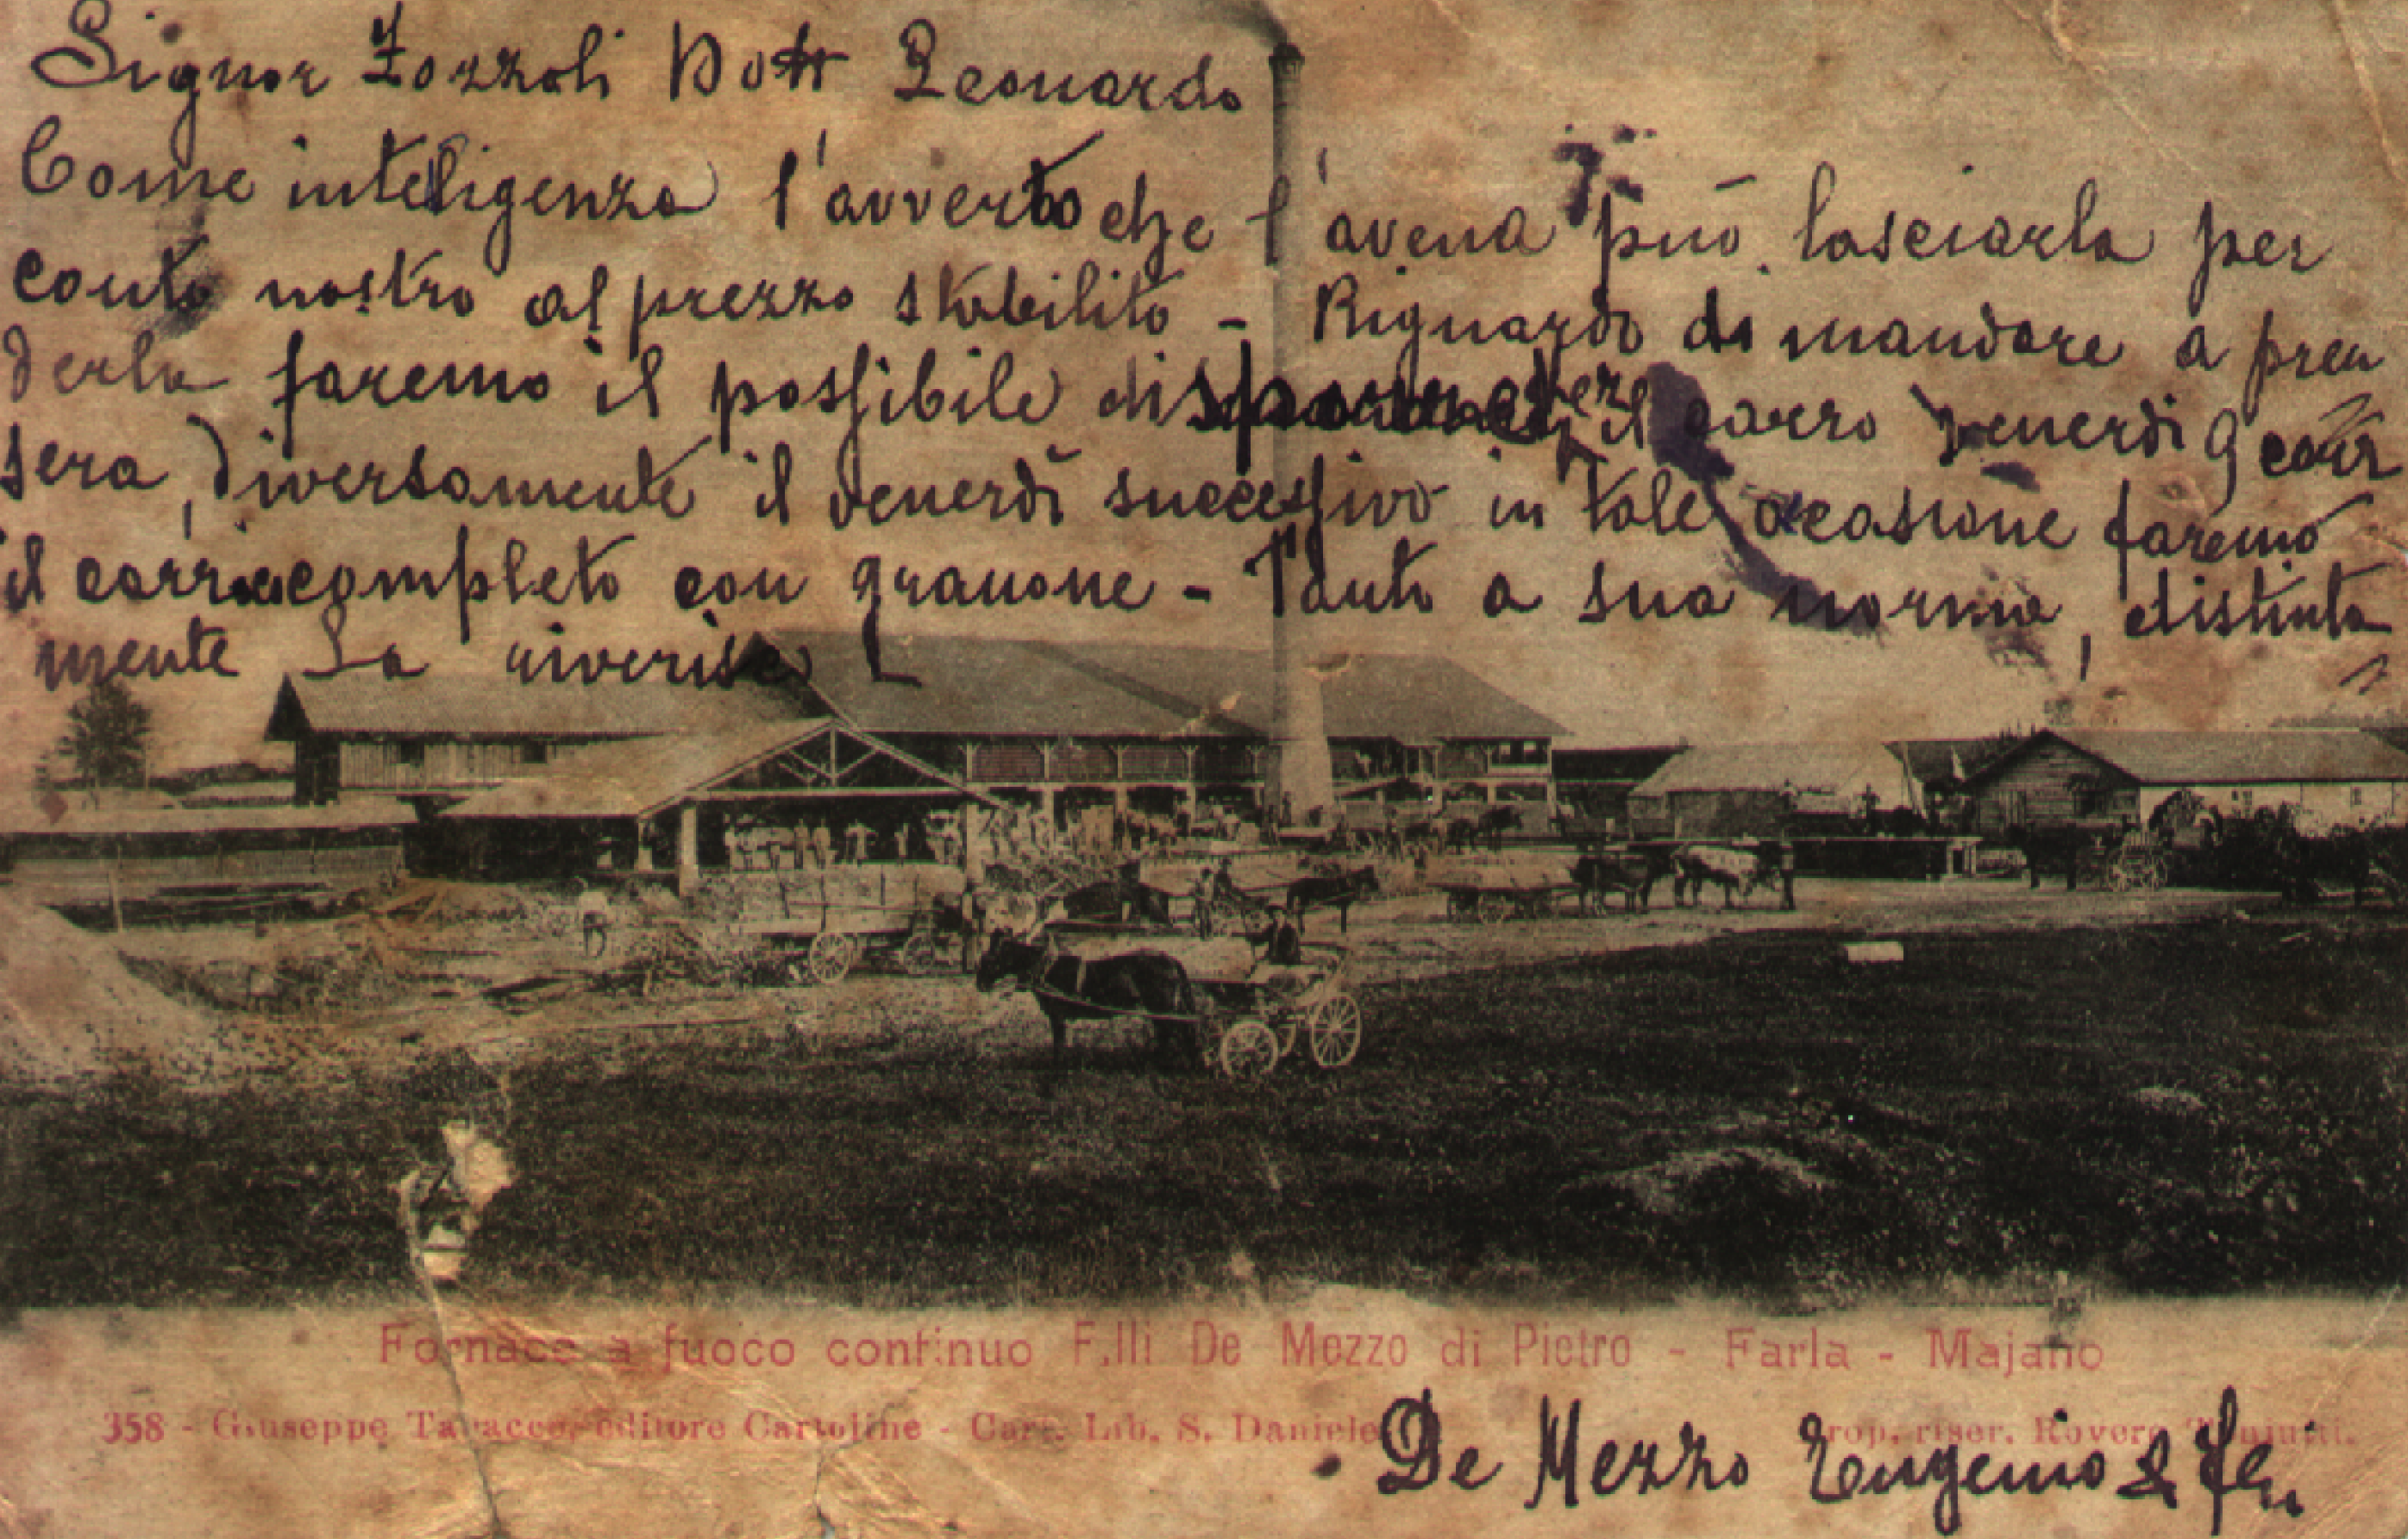 Signor Zozzoli Dott Leonardo
Come inteligenza l'avverto che l'avena può lasciarla per
conto nostro al prezzo stabilito - Riguardo di mandare a pren
derla faremo il possibile di il carro venerdì 9 corr
sera, diversamente il venerdì successivo in tale ocasione faremo
il carro completo con granone - Tanto a sua norma, distinta
mente La riverisco
Fornace a fuoco continuo F.lli De Mezzo di Pietro - Farla - Majano
358 - Giuseppe Tabacco, editore Cartoline - Cart. Lib. S. Daniele
Prop. riser. Rovere
De Mezzo Eugenio & Flli